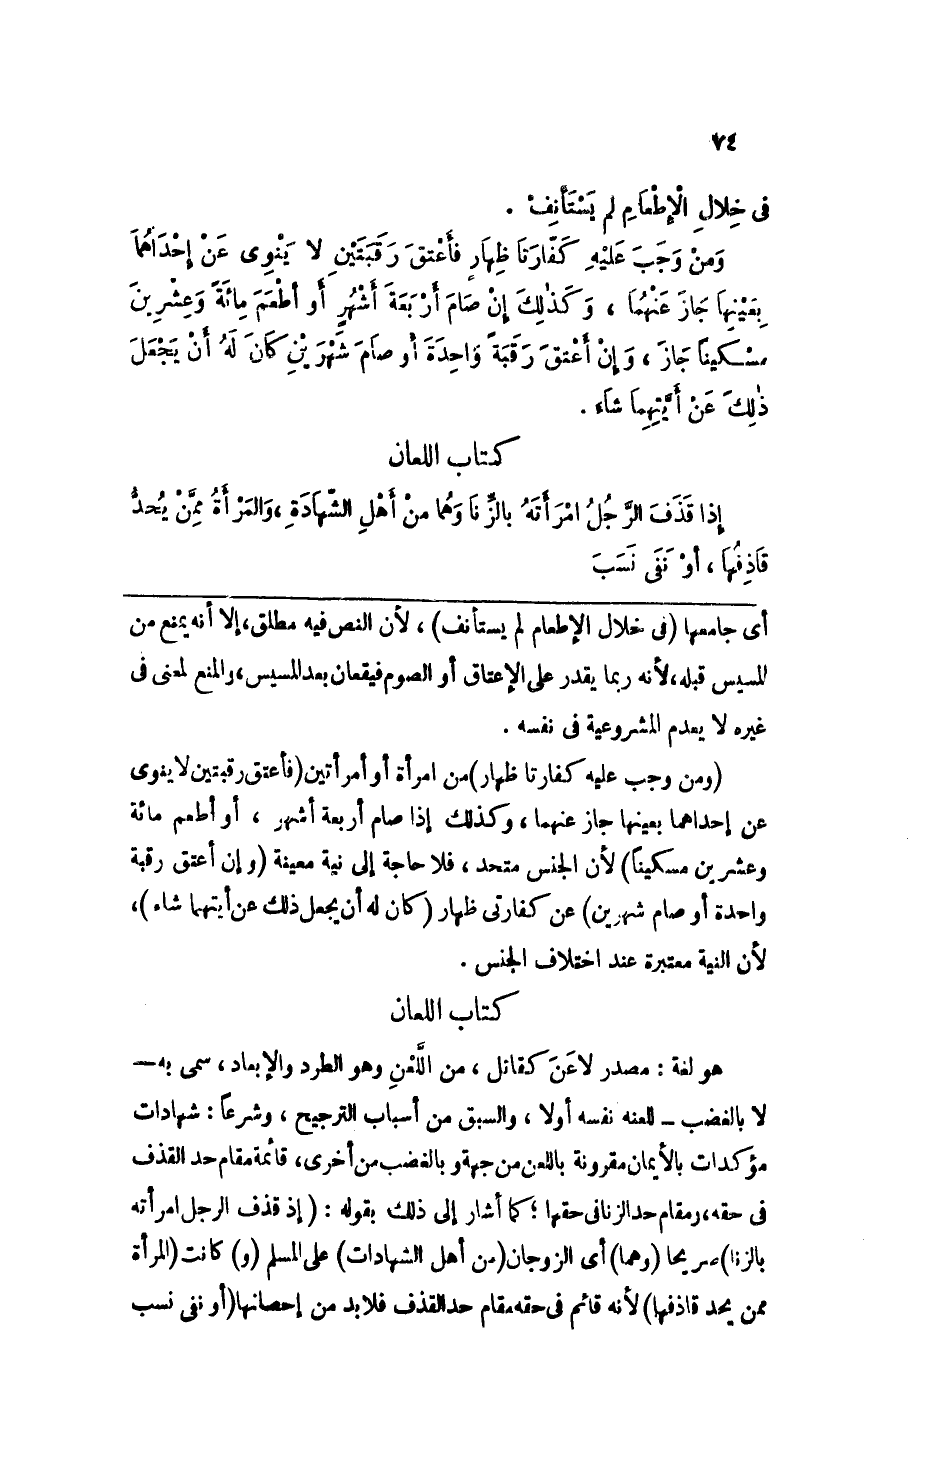 ٧٤
فى خِلالِ الْإِطْعَامِ لم يَسْتَأْنِفْ .
وَمنْ وَجَبَ عَلَيْهِ كَفَّارَتَا ظِهارٍ فأَعْتقَ رَقَبَتَيْنِ لا يَنْوِى عَنْ إِحْدَاهُمَا
بِعَيْنِها جَازَ عَنْهُما ، وَكَذٰلِكَ إنْ صَامَ أَرْبَعَةَ أَشْهُرٍ أَو أطْعَمَ مِائَةً وَعِشْرِينَ
مسْكيناً جَازَ ، وَإِنْ أَعْتقَ رَقَبَةً وَاحِدَةً أو صاَمَ شَهْرَيْنِ كَانَ لَهُ أَنْ يَجْعَلَ
ذٰلِكَ عَنْ أَيَّتِهِما شاَء .
كتاب اللعان
إِذا قَذَفَ الرَّجُلُ امْرَأَتَهُ بالزِّنا وَهُما منْ أَهْلِ الشَّهادَةِ ،وَالمَرْأَةُ مِمَّنْ يُحدُّ
قَاذِفُها ، أوْ نَفَى نَسَبَ
أى جامعها (فى خلال الإطعام لم يستأنف) ، لأن النص فيه مطلق،إلا أنه يمنع من
المسيس قبله،لأنه ربما يقدر على الإعتاق أو الصوم فيقعان بعد المسيس،والمنع لمعنى فى
غيره لا يعدم المشروعية فى نفسه .
(ومن وجب عليه كفارتا ظهار)من امرأة أو أمرأتين(فأعتق رقبتين لا ينوى
عن إحداهما بعينها جاز عنهما ، وكذلك إذا صام أربعة أشهر ، أو أطعم مائة
وعشرين مسكيناً) لأن الجنس متحد ، فلا حاجة إلى نية معينة (وإن أعتق رقبة
واحدة أو صام شهرين) عن كفارتى ظهار (كان له أن يجعل ذلك عن أيتهما شاء)،
لأن النية معتبرة عند اختلاف الجنس .
كتاب اللعان
هو لغة : مصدر لاعَنَ كقاتل ، من اللَّعْنِ وهو الطرد والإبعاد ، سمى به—
لا بالغضب – للعنه نفسه أولا ، والسبق من أسباب الترجيح ، وشرعاً : شهادات
مؤكدات بالأيمان مقرونة باللعن من جهة و بالغضب من أخرى، قائمة مقام حد القذف
فى حقه،ومقام حد الزنا فى حقها ؛ كما أشار إلى ذلك بقوله : (إذ قذف الرجل امرأته
بالزنا)صريحا (وهما)أى الزوجان(من أهل الشهادات) على المسلم (و) كانت(المرأة
ممن يحد قاذفها)لأنه قائم فى حقه مقام حد القذف فلابد من إحصانها(أو نفى نسب